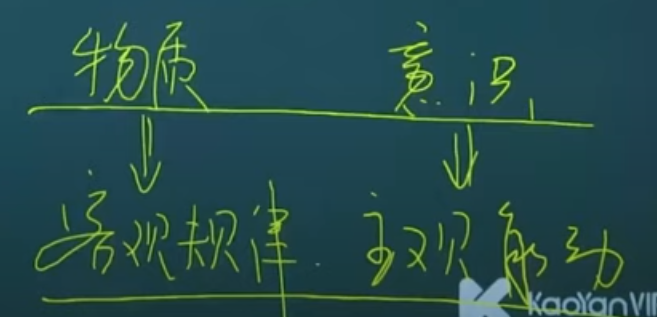 物质 意识
客观规律 主观能动
KaoYanVIP